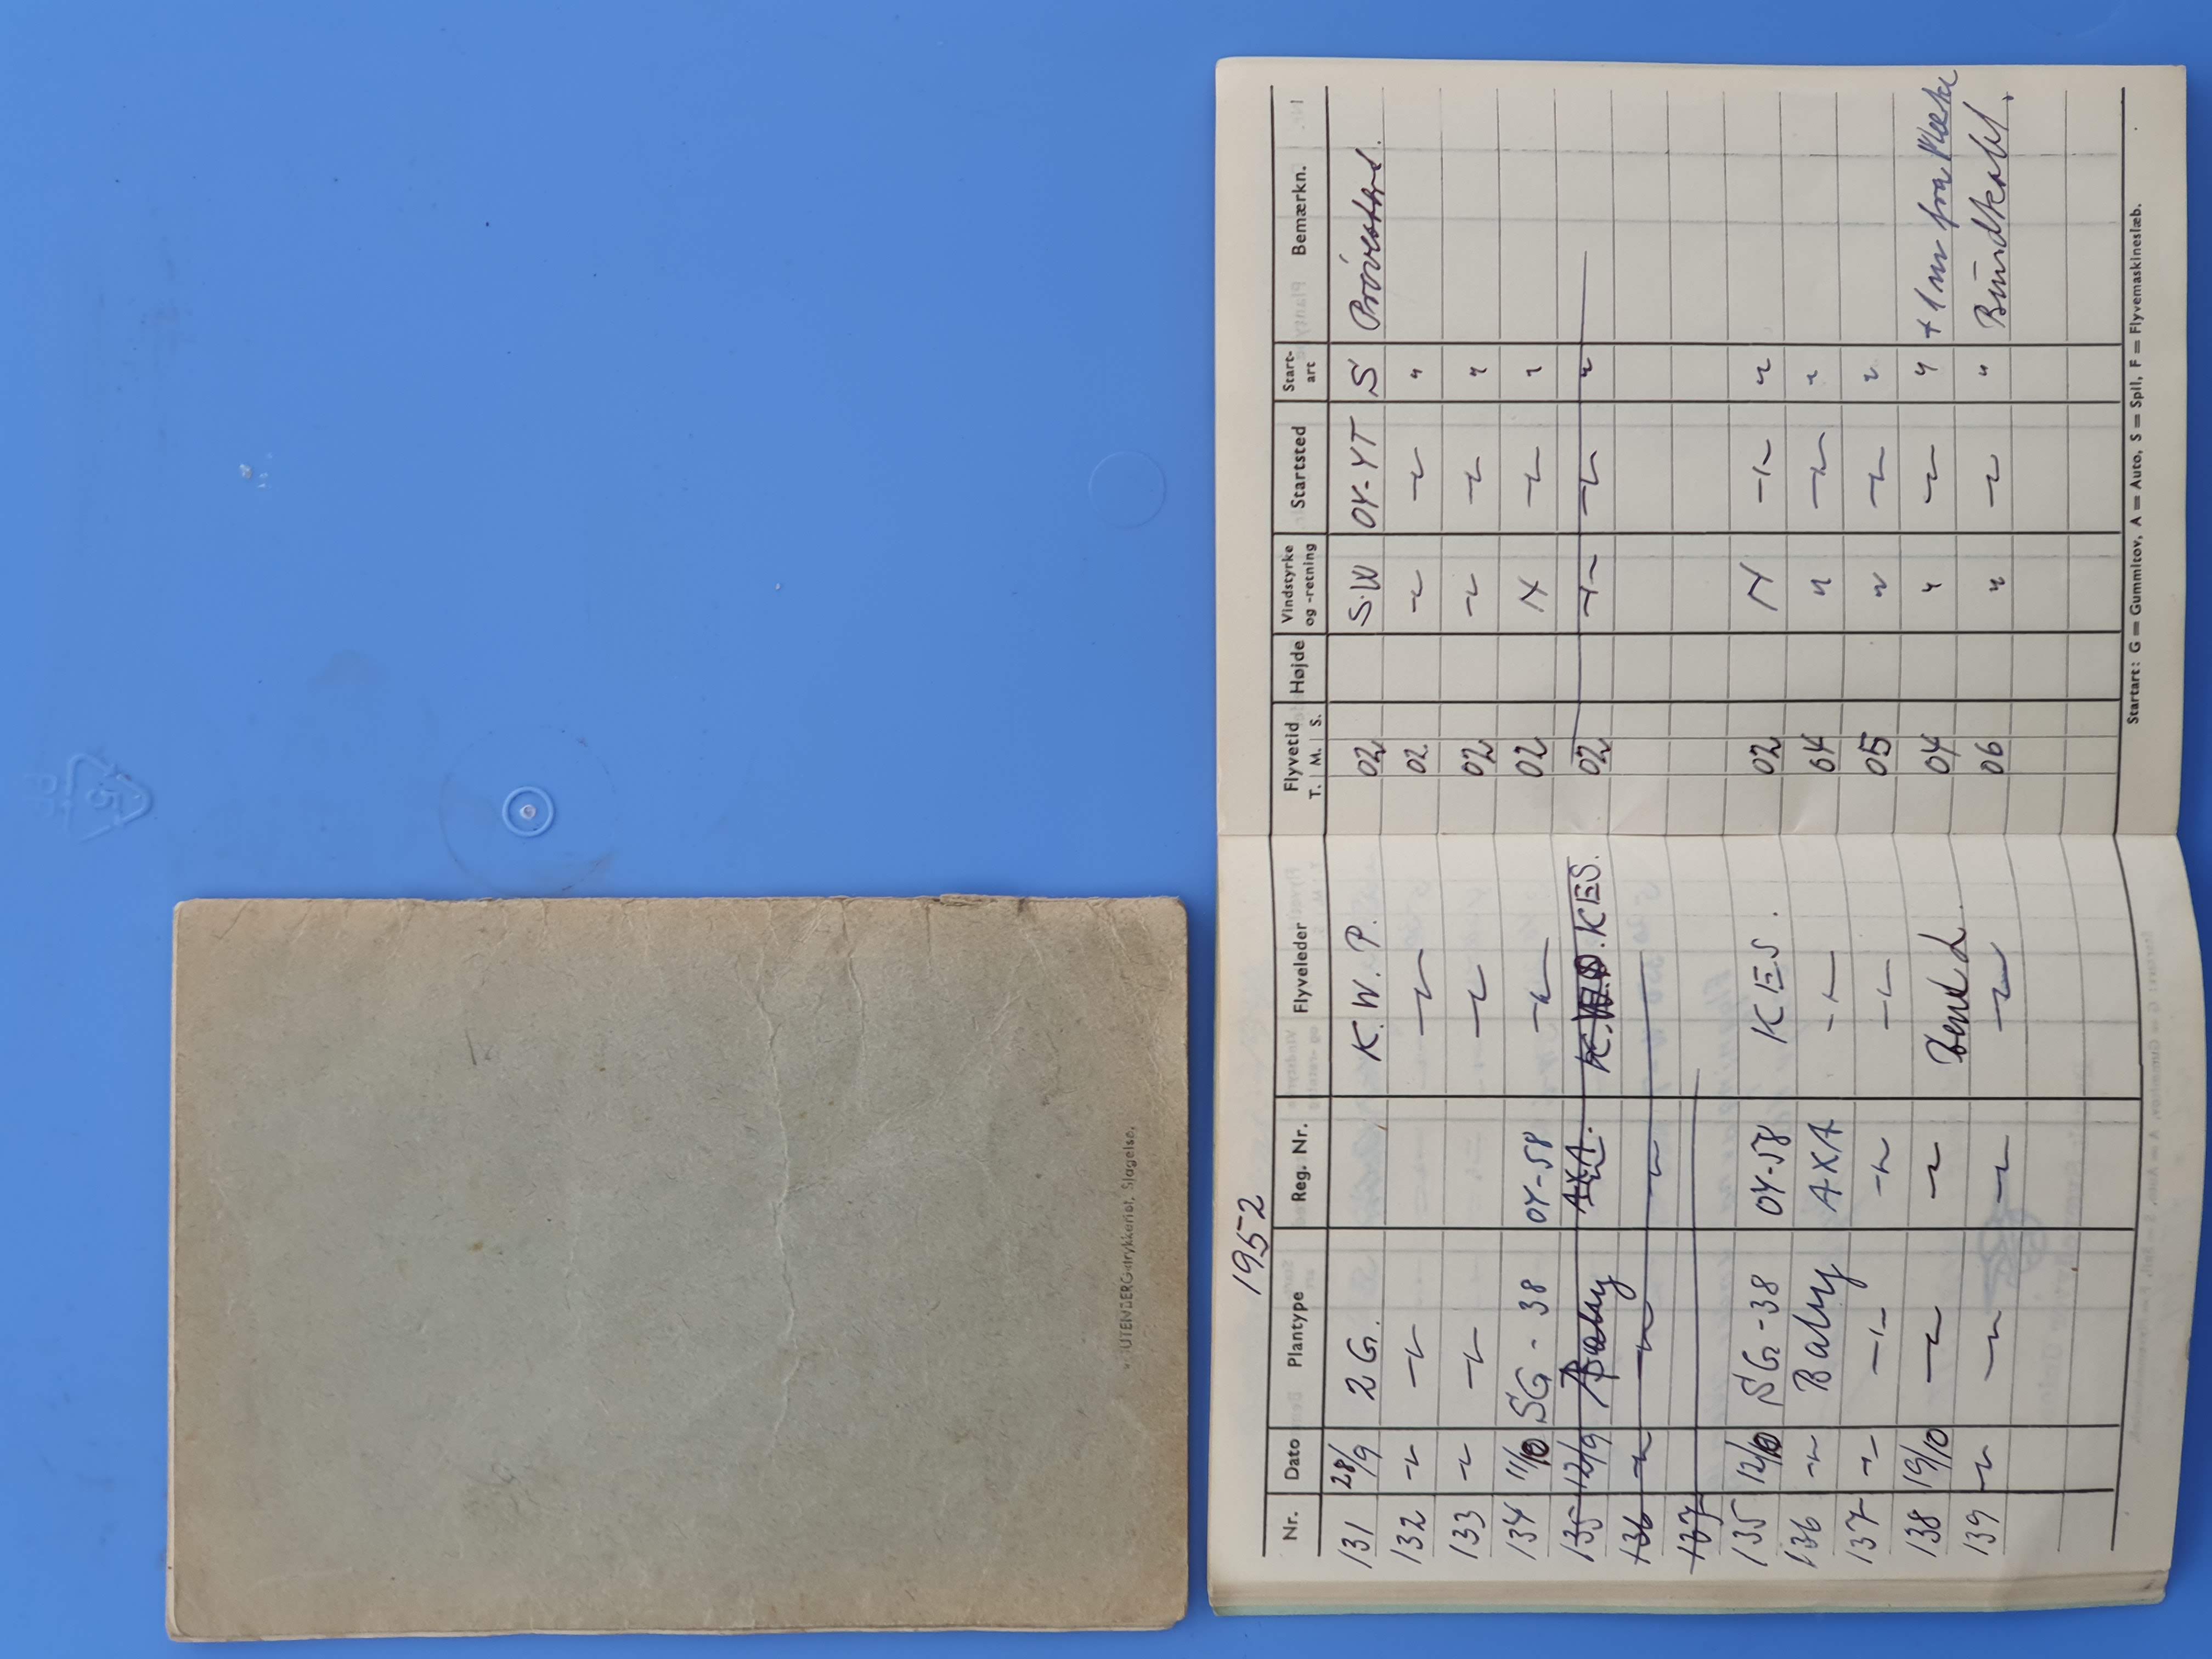 GUTENBERG-trykkeriet, Slagelse.
1952
Nr. Dato Plantype Reg. Nr. Flyveleder Flyvetid T. M. S. Højde Vindstyrke og -retning Startsted Start-art Bemærkn.
131 28/9 2 G. K.W.P. 02 S.W OY-YT S Prøvestart.
132 〃 〃 〃 02 〃 〃 〃
133 〃 〃 〃 02 〃 〃 〃
134 11/10 SG-38 OY-58 〃 02 N 〃 〃
135 12/9 Baby AXA. KES. 02 〃 〃 〃
136 〃 〃 〃
137
135 12/10 SG-38 OY-58 KES. 02 N 〃 〃
136 〃 Baby AXA 〃 04 〃 〃 〃
137 〃 〃 〃 〃 05 〃 〃 〃
138 19/10 〃 〃 04 〃 〃 〃 + 1 m fra
139 〃 〃 〃 〃 06 〃 〃 〃
Startart: G = Gummitov, A = Auto, S = Spil, F = Flyvemaskineslæb.